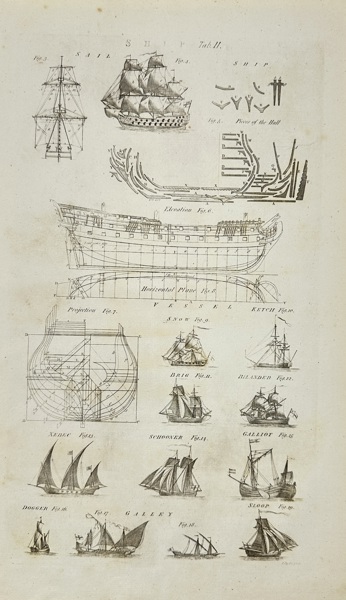 SHIP Tab. II.
SAIL
SHIP
Fig. 3.
Fig. 4.
Fig. 5. Pieces of the Hull
Elevation Fig. 6.
Horizontal Plane Fig. 8.
VESSEL
Projection Fig. 7.
SNOW Fig. 9.
KETCH Fig. 10.
BRIG Fig. 11.
BILANDER Fig. 12.
XEBEC Fig. 13.
SCHOONER Fig. 14.
GALLIOT Fig. 15.
DOGGER Fig. 16.
Fig. 17. GALLEY
Fig. 18.
SLOOP Fig. 19.